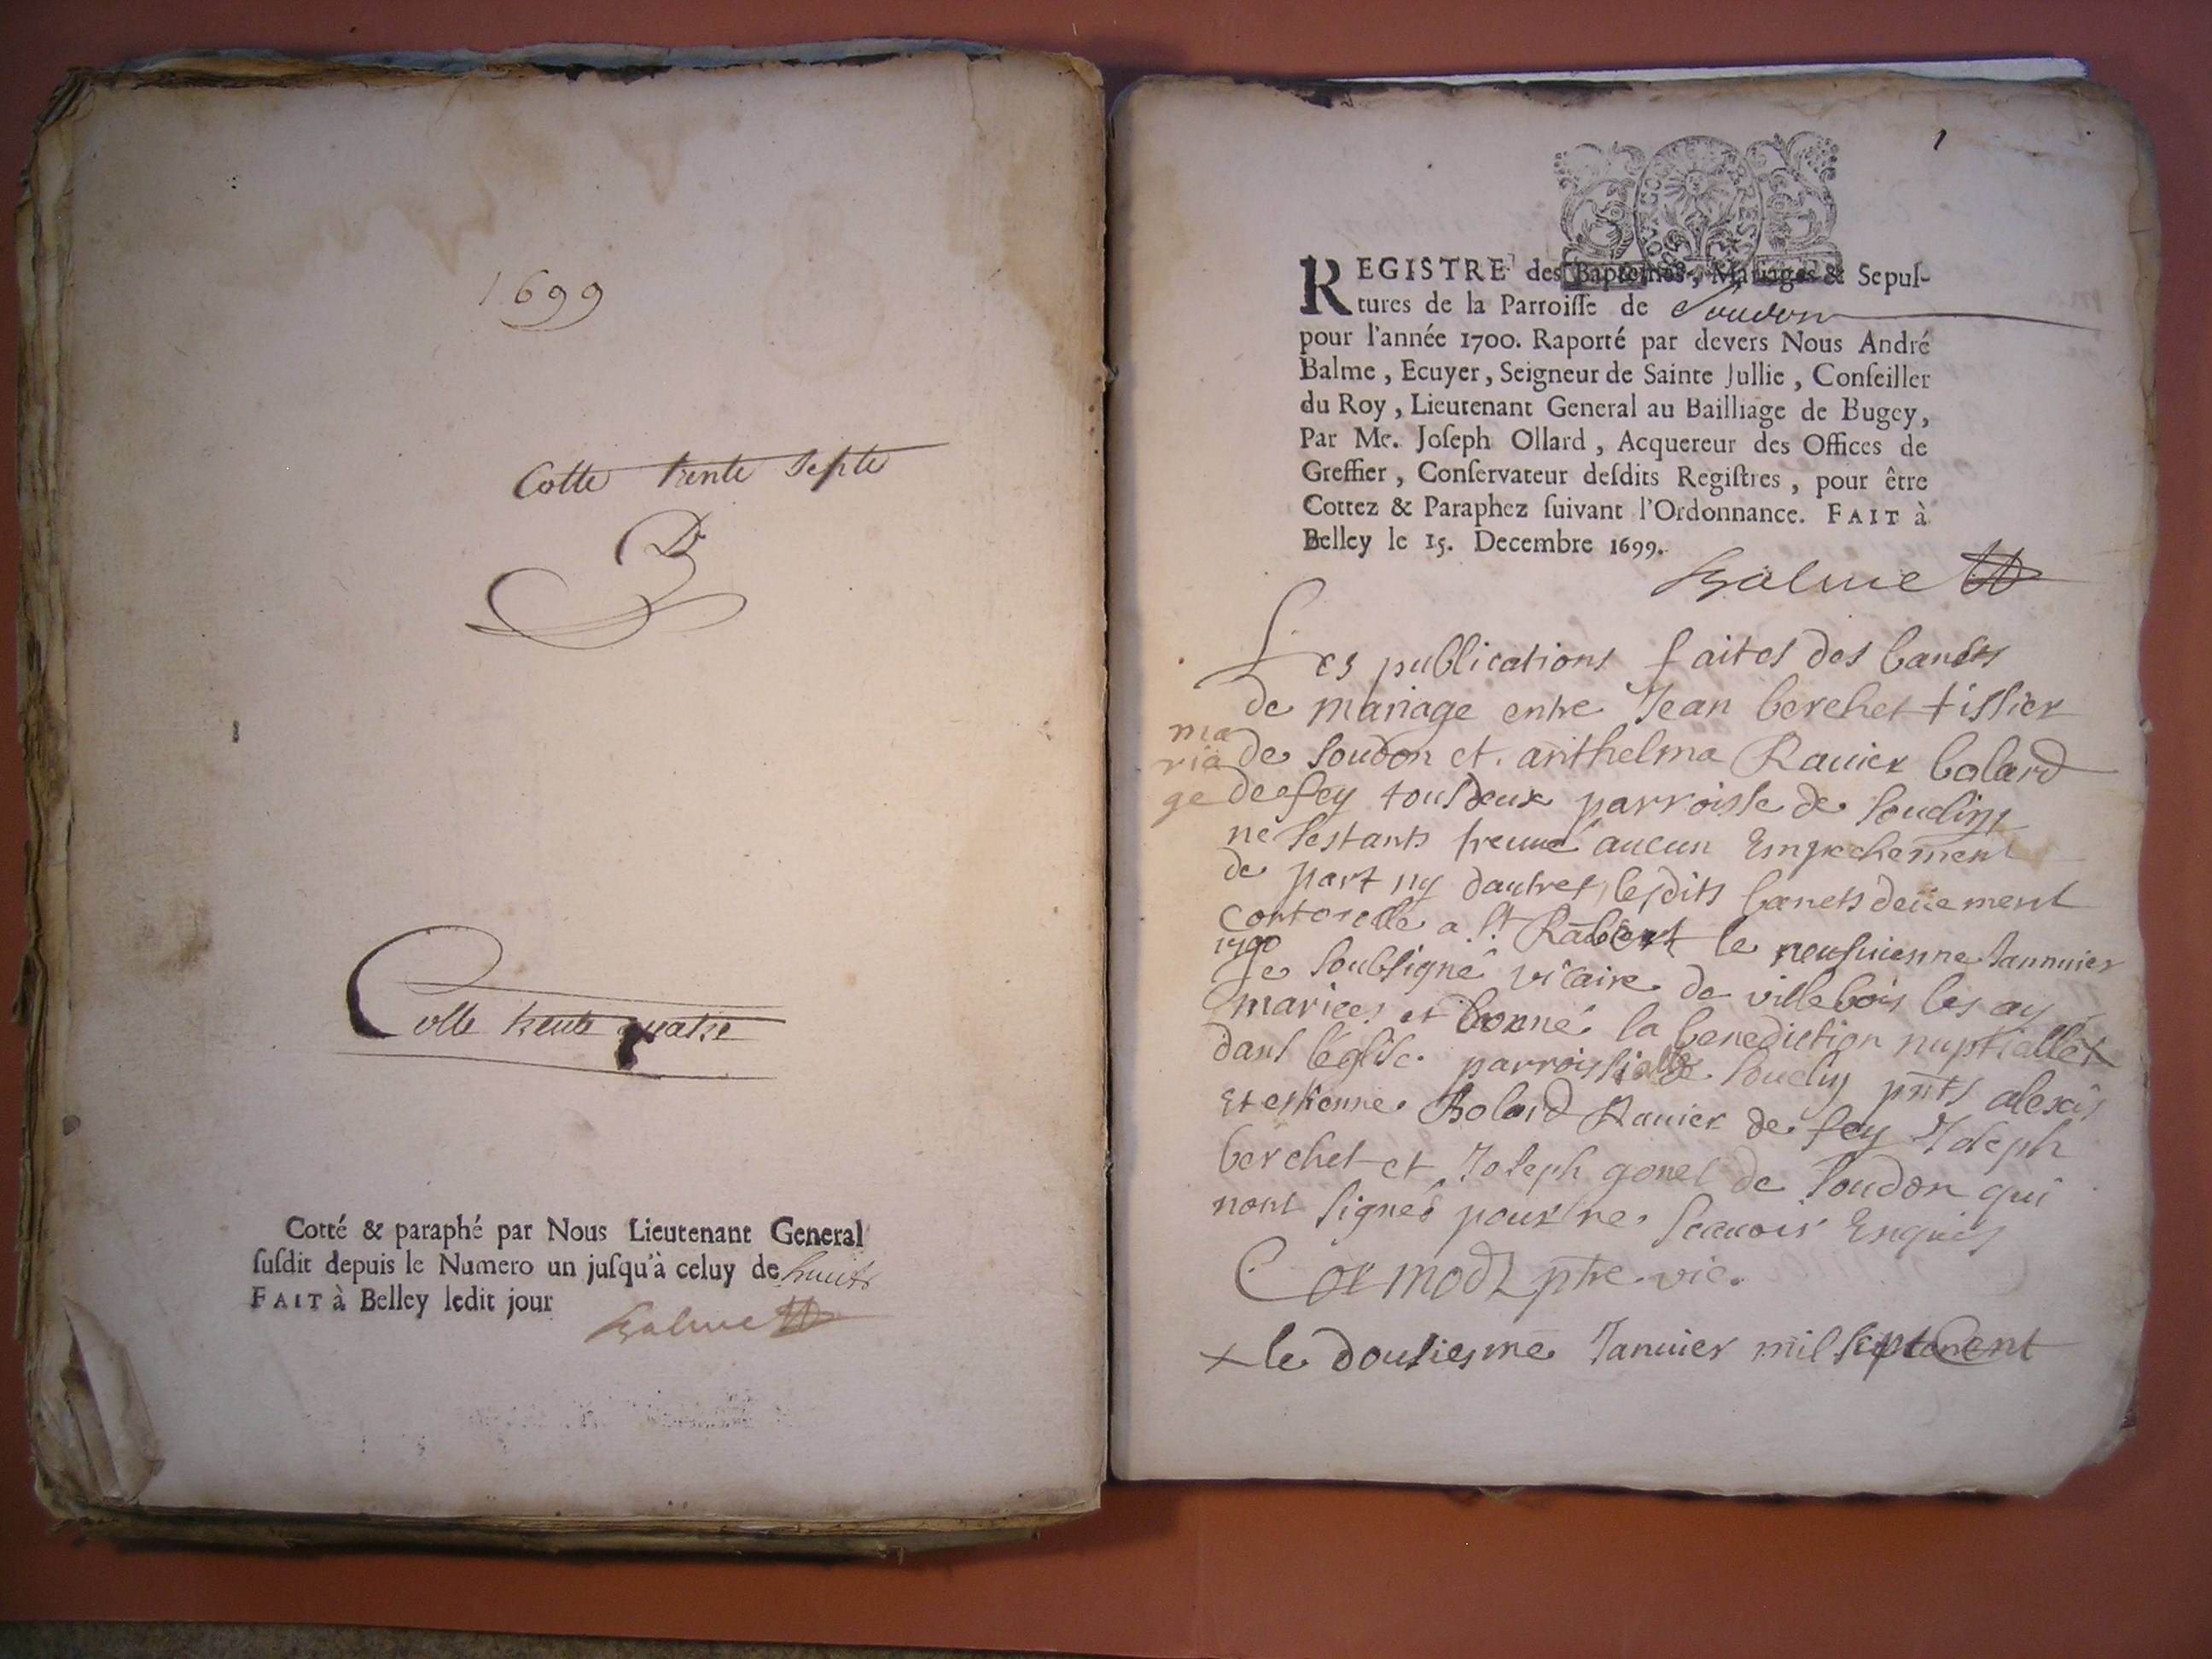 1699
Cotte trente septe
Cotte trente quatre
Cotté & paraphé par Nous Lieutenant General
ſuſdit depuis le Numero un juſqu'à celuy de huict
FAIT à Belley ledit jour
Balme
1
REGISTRE des Baptemes, Mariages & Sepul-
tures de la Parroiſſe de Soudon
pour l'année 1700. Raporté par devers Nous André
Balme, Ecuyer, Seigneur de Sainte Jullie, Conſeiller
du Roy, Lieutenant General au Bailliage de Bugey,
Par Me. Joſeph Ollard, Acquereur des Offices de
Greffier, Conſervateur deſdits Regiſtres, pour être
Cottez & Paraphez ſuivant l'Ordonnance. FAIT à
Belley le 15. Decembre 1699.
Balme
Les publications faites des bancts
de mariage entre Jean berchet tissier
ma
de soudon et anthelma Rauier bolard
ria
de fey tous deux parroisse de souclin
ge
ne sestants treuué aucun Empechement
de part ny dautres lesdits bancts deüement
controllé a st Rabert le neufuiesme Jannuier
1700
Je soubsigné vicaire de villebois les ay
mariees et donné la benediction nuptialle
dans léglise parroissialle souclin pnts alexis
Et estienne Bolard Rauier de fey Joseph
berchet et Joseph gonet de soudon qui
nont signés pour ne scauoir Enquis
Cormod ptre vic.
x le dousiesme Januier mil septcent